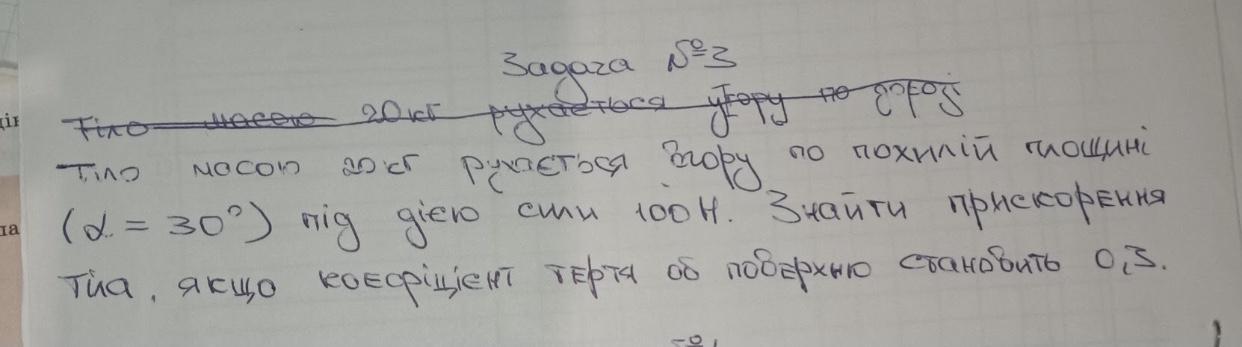 Задача №3
Тіло масою 20 кг рухається угору по
Тіло масою 20 кг рухається вгору по похилій площині
(α = 30°) під дією сили 100 Н. Знайти прискорення
тіла, якщо коефіцієнт тертя об поверхню становить 0,3.